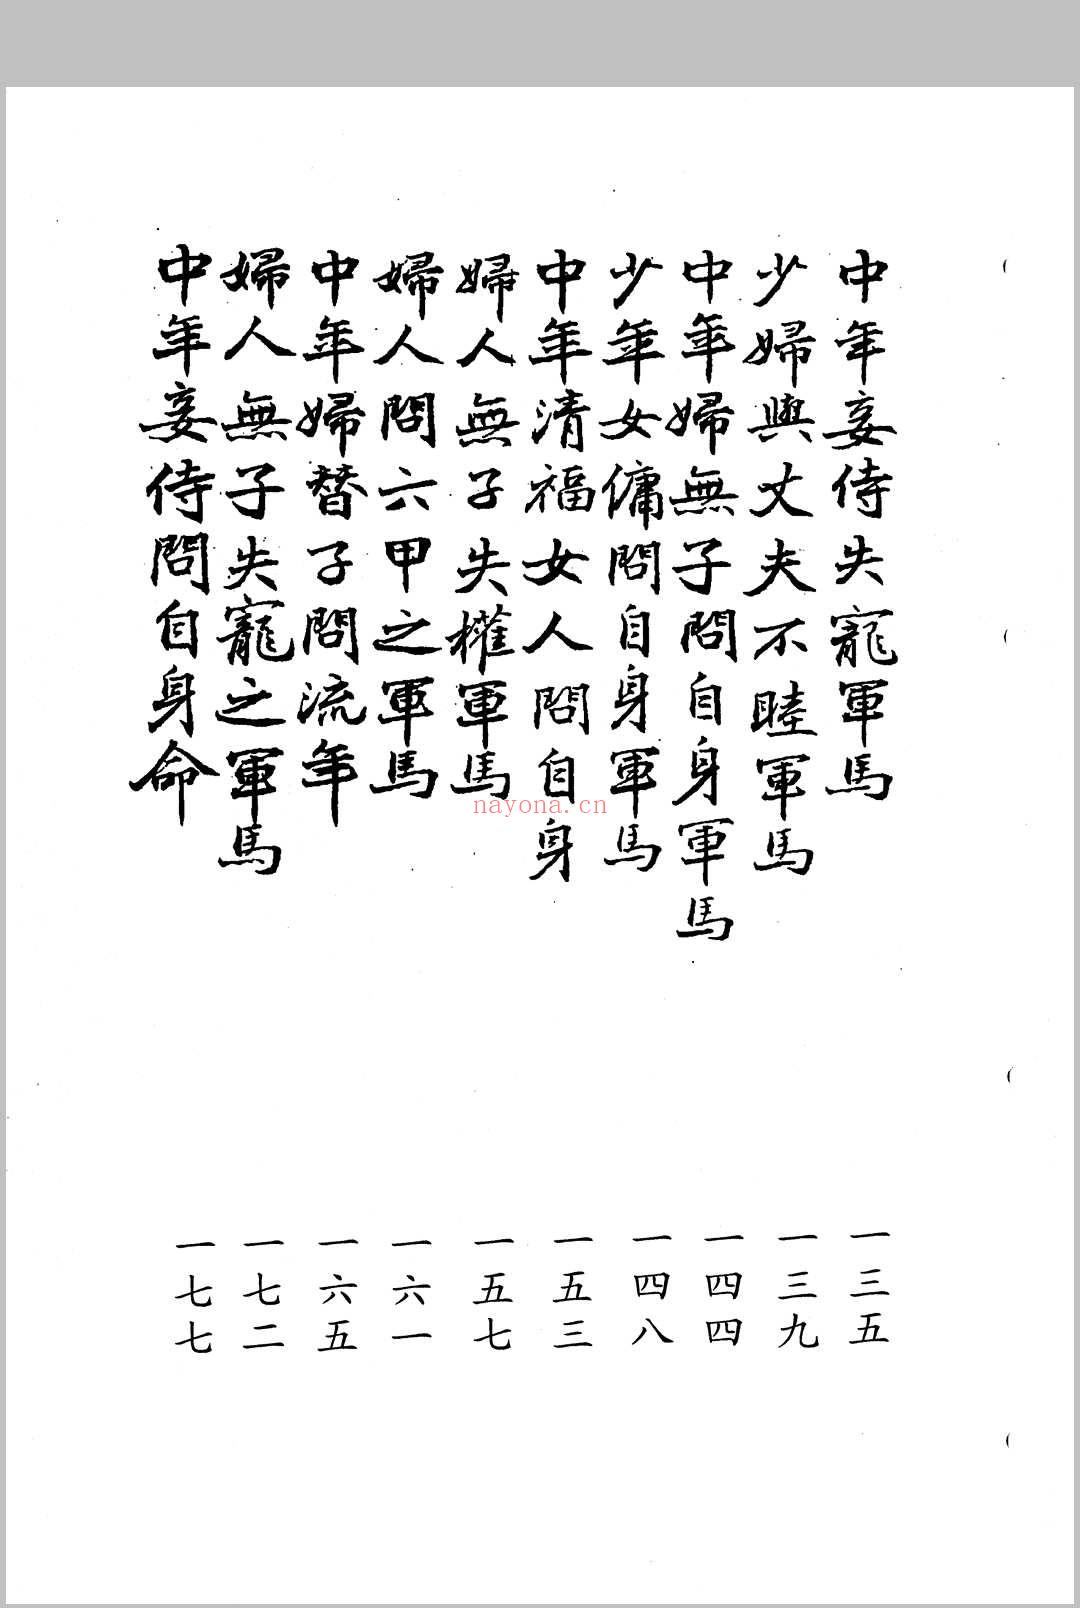 中年妾侍失寵軍馬 一三五
少婦與丈夫不睦軍馬 一三九
中年婦無子問自身軍馬 一四四
少年女傭問自身軍馬 一四八
中年清福女人問自身 一五三
婦人無子失權軍馬 一五七
婦人問六甲之軍馬 一六一
中年婦替子問流年 一六五
婦人無子失寵之軍馬 一七二
中年妾侍問自身命 一七七
nayona.cn